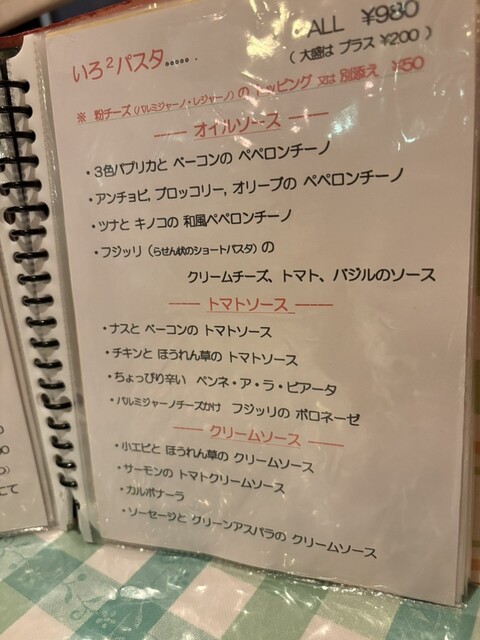 いろ²パスタ......
ALL ¥980
(大盛は プラス ¥200)
※ 粉チーズ(パルミジャーノ・レジャーノ)の トッピング 又は 別添え ¥50
オイルソース
・3色パプリカと ベーコンの ペペロンチーノ
・アンチョビ, ブロッコリー, オリーブの ペペロンチーノ
・ツナと キノコの 和風ペペロンチーノ
・フジッリ(らせん状のショートパスタ)の
クリームチーズ、トマト、バジルのソース
トマトソース
・ナスと ベーコンの トマトソース
・チキンと ほうれん草の トマトソース
・ちょっぴり辛い ペンネ・ア・ラ・ビアータ
・パルミジャーノチーズかけ フジッリの ボロネーゼ
クリームソース
・小エビと ほうれん草の クリームソース
・サーモンの トマトクリームソース
・カルボナーラ
・ソーセージと グリーンアスパラの クリームソース
にて